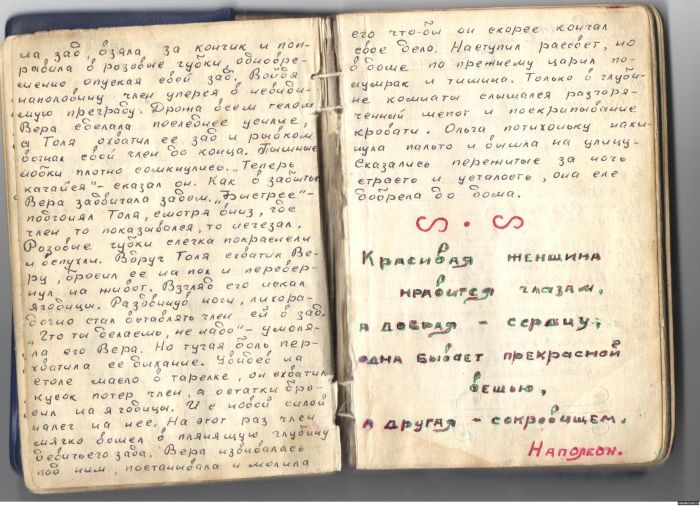 на зад взяла за кончик и поп-
равила в розовые губки, одновре-
менно опуская свой зад. Войдя
наполовину член уперся в невиди-
мую преграду. Дрожа всем телом
Вера сделала последнее усилие,
а Толя охватил ее зад и рывком
вогнал свой член до конца. Пышные
ы плотно сомкнулись. „Теперь
качайся" - сказал он. Как в забытье
Вера задвигала задом. „Быстрее" -
подгонял Толя, смотря вниз, где
член то показывался, то исчезал.
Розовые губки слегка покраснели
и вспухли. Вдруг Толя схватил Ве-
ру, бросил ее на пол и перевер-
нул на живот. Взгляд его искал
ягодицы. Раздвинув ноги, лихора-
дочно стал вставлять член ей в зад.
„Что ты делаешь, не надо" - умоля-
ла его Вера. Но тучая боль пере-
хватила ее дыхание. Увидев на
столе масло в тарелке, он схватил
кусок потер член, а остатки бро-
сил на ягодицы. И с новой силой
налег на нее. На этот раз член
мягко вошел в глубину
девичьего зада. Вера извивалась
под ним, постанывала и молила
его что-бы он скорее кончал
свое дело. Наступил рассвет, но
в доме по прежнему царил по-
лумрак и тишина. Только в глуби-
не комнаты слышался разгоря-
ченный шепот и поскрипывание
кровати. Ольга потихоньку наки-
нула пальто и вышла на улицу.
Сказались пережитые за ночь
страсть и усталость, она еле
добрела до дома.
Красивая женщина
нравится глазам,
а добрая - сердцу;
одна бывает прекрасной
вещью,
а другая - сокровищем.
Наполеон.